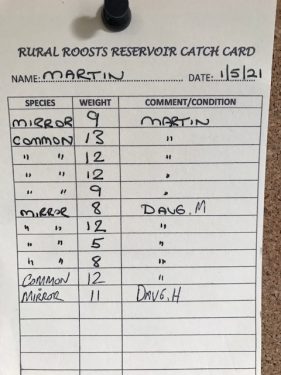 RURAL ROOSTS RESERVOIR CATCH CARD
NAME: MARTIN DATE: 1/5/21
SPECIES WEIGHT COMMENT/CONDITION
MIRROR 9 MARTIN
COMMON 13 "
" " 12 "
" " 12 "
" " 9 "
MIRROR 8 DAVG.M
" " 12 "
" " 5 "
" " 8 "
COMMON 12 "
MIRROR 11 DAVG.H